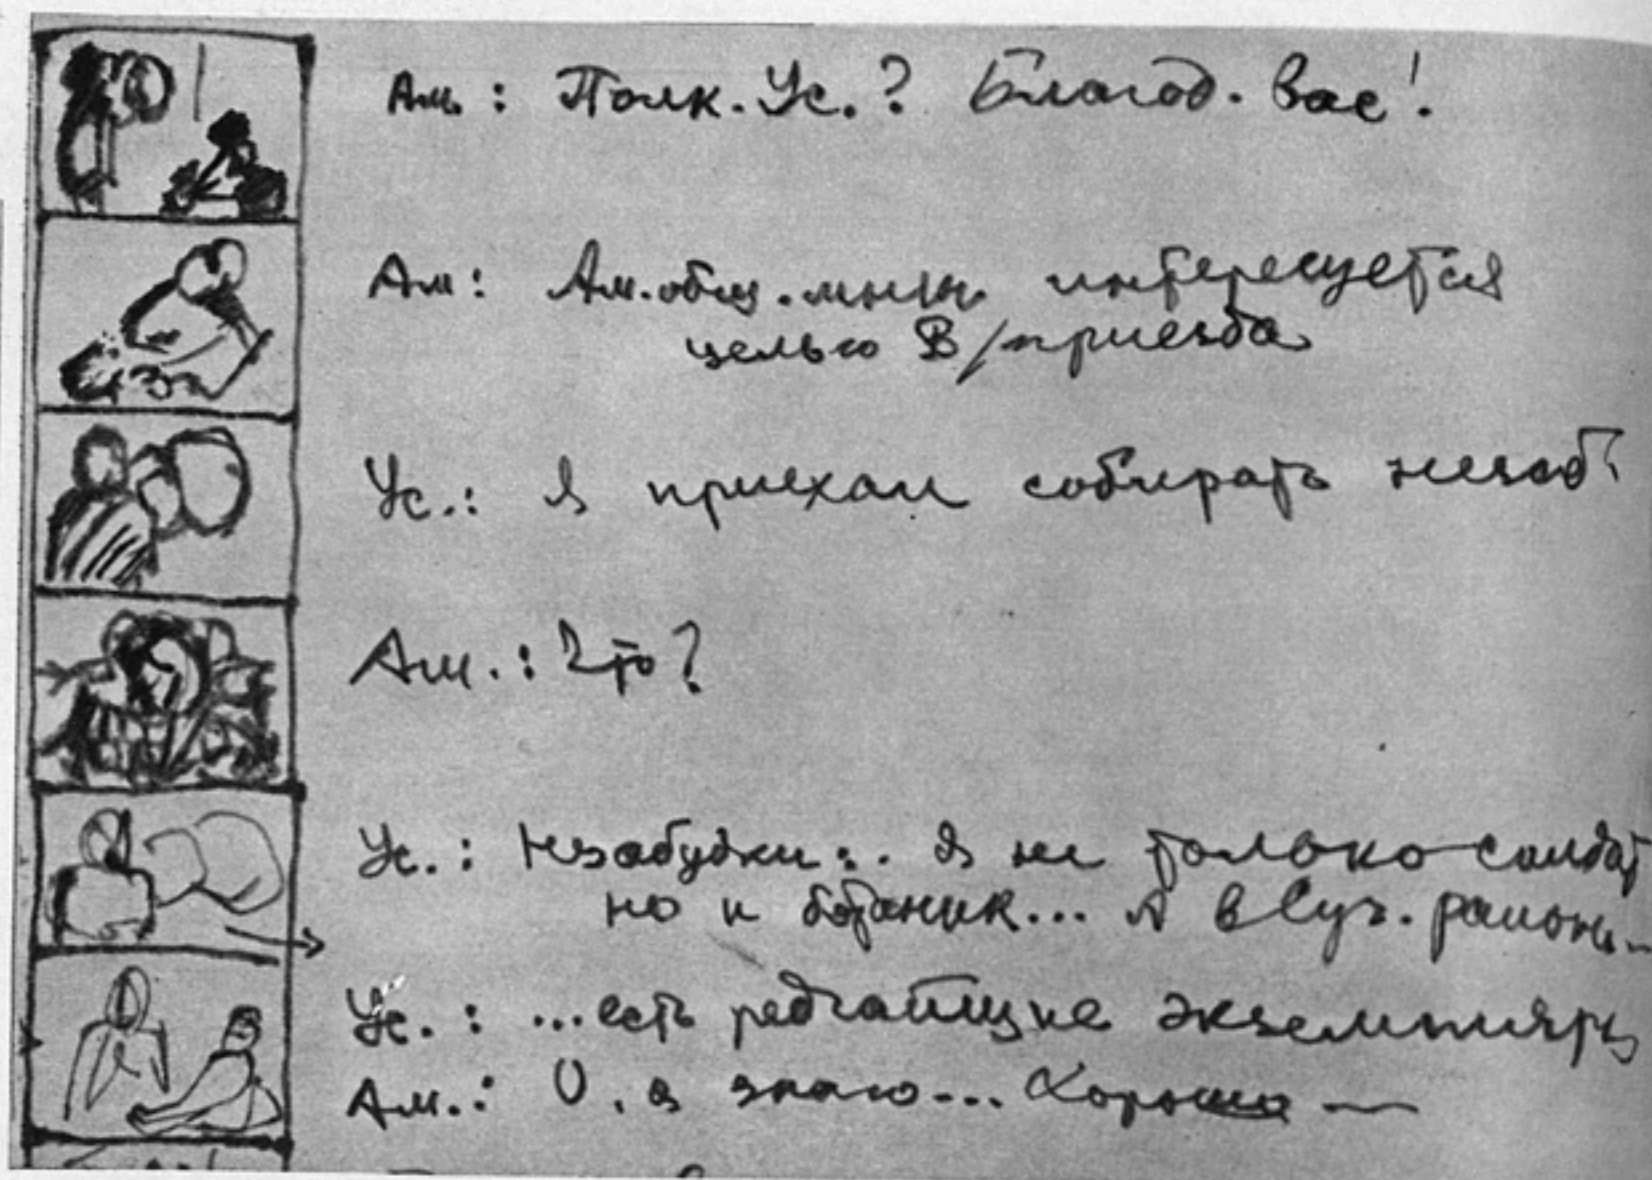 Ам.: Полк. Ус.? Благод. вас!
Ам: Ам. общ. мнен. интересуется
целью В/приезда
Ус.: Я приехал собирать незаб.
Ам.: Что?
Ус.: Незабудки... Я не только солдат
но и ботаник... А в Суч. районе
Ус.: ...есть редчайшие экземпляры
Ам.: О, я знаю... Хорошо —